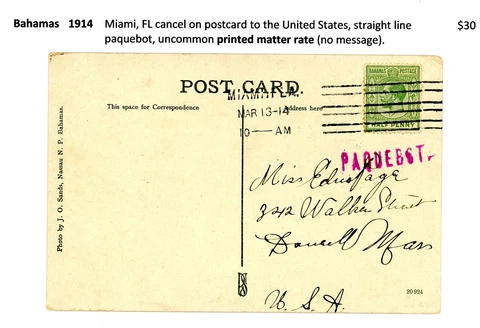 Bahamas 1914 Miami, FL cancel on postcard to the United States, straight line $30
paquebot, uncommon printed matter rate (no message).
POST CARD.
This space for Correspondence
Address here
MIAMI, FLA.
MAR 13-14
10 — AM
BAHAMAS POSTAGE
HALF PENNY
PAQUEBOT.
Miss Edna Page
342 Walker Street
Mass
U. S. A.
Photo by J. O. Sands, Nassau N. P. Bahamas.
20924